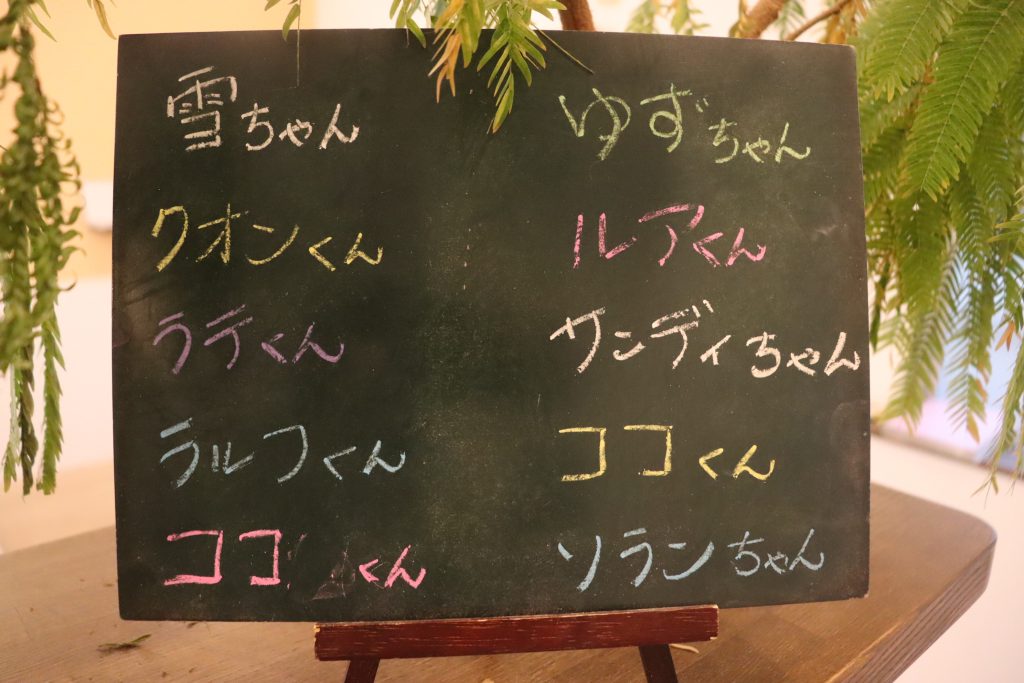 雪ちゃん
クオンくん
ラテくん
ラルフくん
ココくん
ゆずちゃん
ルアくん
サンディちゃん
ココくん
ソランちゃん